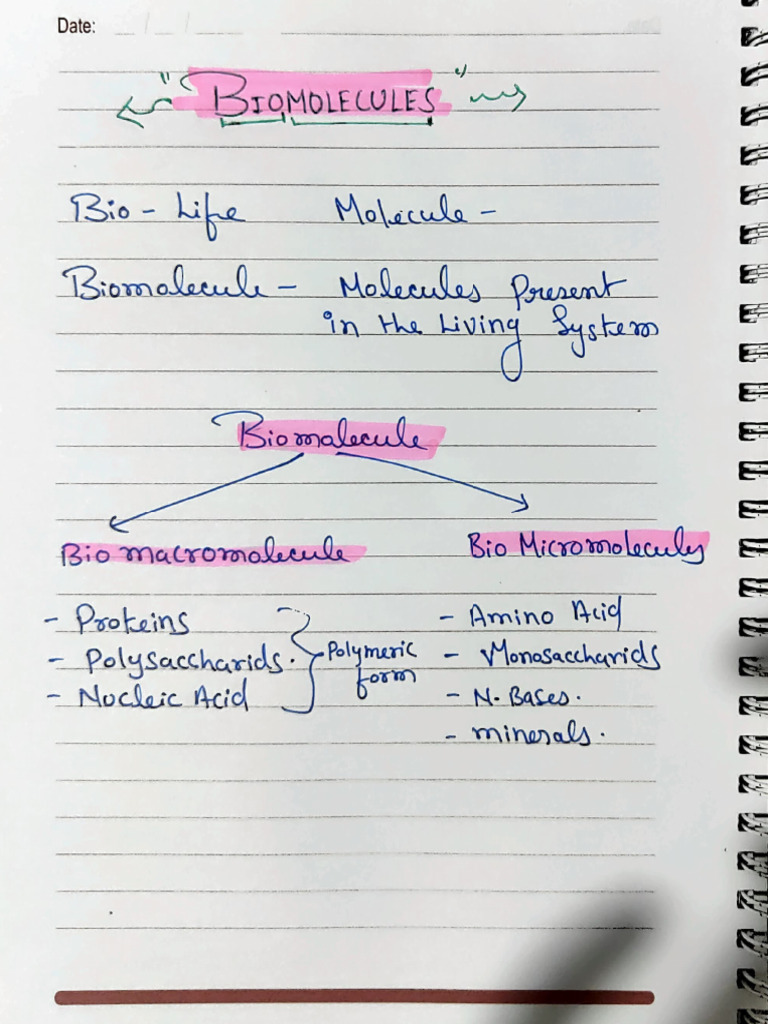 Date:
"BIOMOLECULES"
Bio - Life Molecule -
Biomolecule - Molecules Present
in the Living System
Biomolecule
Bio macromolecule
Bio Micromolecules
- Proteins
- Polysaccharids.
- Nucleic Acid
Polymeric
form
- Amino Acid
- Monosaccharids
- N. Bases.
- minerals.